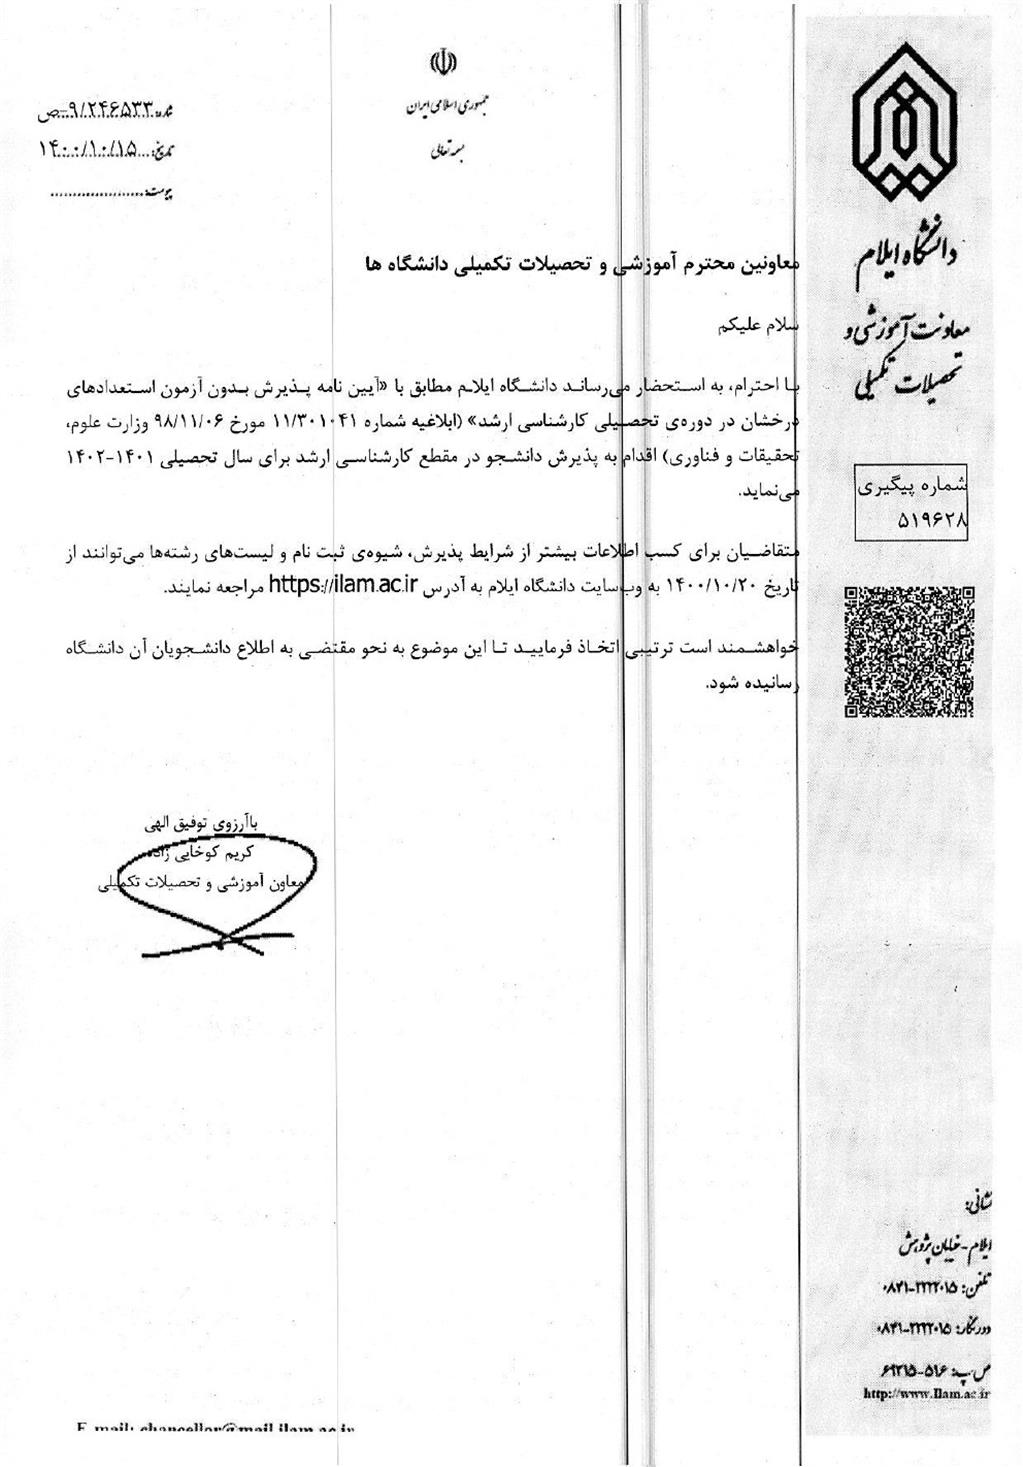 جمهوری اسلامی ایران
بسمه تعالی
شماره: ۹/۲۴۶۵۳۳-ص
تاریخ: ۱۴۰۰/۱۰/۱۵
پیوست:
دانشگاه ایلام
معاونت آموزشی و
تحصیلات تکمیلی
شماره پیگیری
۵۱۹۶۲۸
معاونین محترم آموزشی و تحصیلات تکمیلی دانشگاه ها
سلام علیکم
با احترام، به استحضار می‌رساند دانشگاه ایلام مطابق با «آیین نامه پذیرش بدون آزمون استعدادهای
درخشان در دوره‌ی تحصیلی کارشناسی ارشد» (ابلاغیه شماره ۱۱/۳۰۱۰۴۱ مورخ ۹۸/۱۱/۰۶ وزارت علوم،
تحقیقات و فناوری) اقدام به پذیرش دانشجو در مقطع کارشناسی ارشد برای سال تحصیلی ۱۴۰۱-۱۴۰۲
می‌نماید.
متقاضیان برای کسب اطلاعات بیشتر از شرایط پذیرش، شیوه‌ی ثبت نام و لیست‌های رشته‌ها می‌توانند از
تاریخ ۱۴۰۰/۱۰/۲۰ به وب‌سایت دانشگاه ایلام به آدرس https://ilam.ac.ir مراجعه نمایند.
خواهشمند است ترتیبی اتخاذ فرمایید تا این موضوع به نحو مقتضی به اطلاع دانشجویان آن دانشگاه
رسانیده شود.
باآرزوی توفیق الهی
کریم کوخایی زاده
معاون آموزشی و تحصیلات تکمیلی
نشانی:
ایلام-خیابان پژوهش
تلفن: ۲۲۲۲۰۱۵-۰۸۴۱
دورنگار: ۲۲۲۲۰۱۵-۰۸۴۱
ص پ: ۵۱۶-۶۹۳۱۵
http://www.Ilam.ac.ir
E-mail: chancellor@mail.ilam.ac.ir